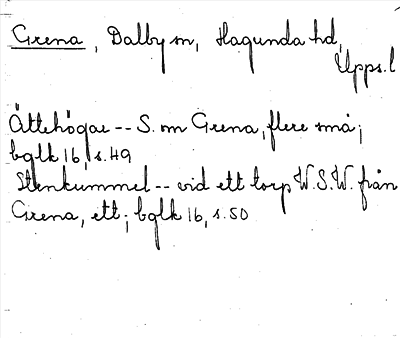 Grena, Dalby sn, Hagunda hd,
Upps. l
Ättehögar -- S. om Grena, flere små;
bglk 16, s. 49
Stenkummel -- vid ett torp W.S.W. från
Grena, ett; bglk 16, s. 50